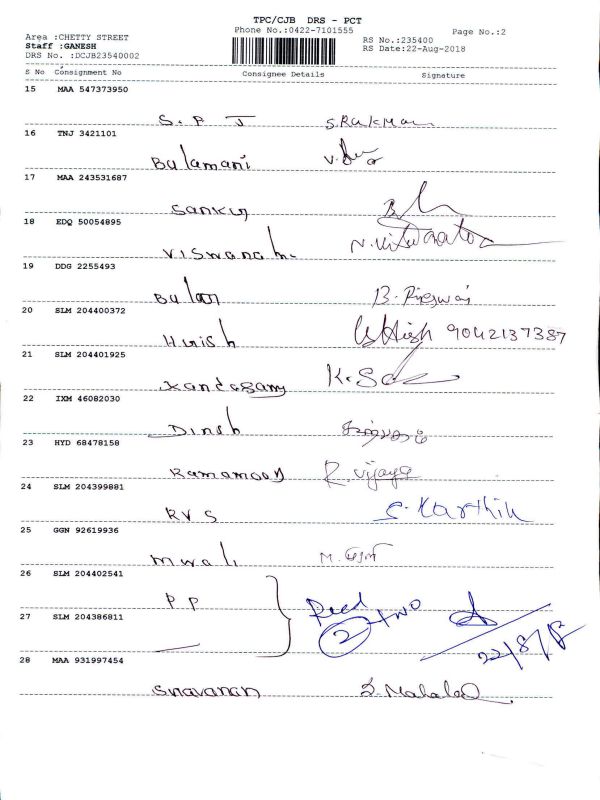 TPC/CJB DRS - PCT
Phone No.:0422-7101555
Page No.:2
Area :CHETTY STREET
RS No.:235400
Staff :GANESH
RS Date:22-Aug-2018
DRS No. :DCJB23540002
S No Consignment No Consignee Details Signature
15 MAA 547373950
S. P J
16 TNJ 3421101
Balamani
17 MAA 243531687
Sankur
18 EDQ 50054895
Viswanath
19 DDG 2255493
Balan
20 SLM 204400372
Harish 9042137387
21 SLM 204401925
Kandasamy
22 IXM 46082030
Dinsh
23 HYD 68478158
Ramamoory R. Vijaya
24 SLM 204399881
RVS S. Karthik
25 GGN 92619936
26 SLM 204402541
P P
Recd two
2
22/8/18
27 SLM 204386811
28 MAA 931997454
Sravanan